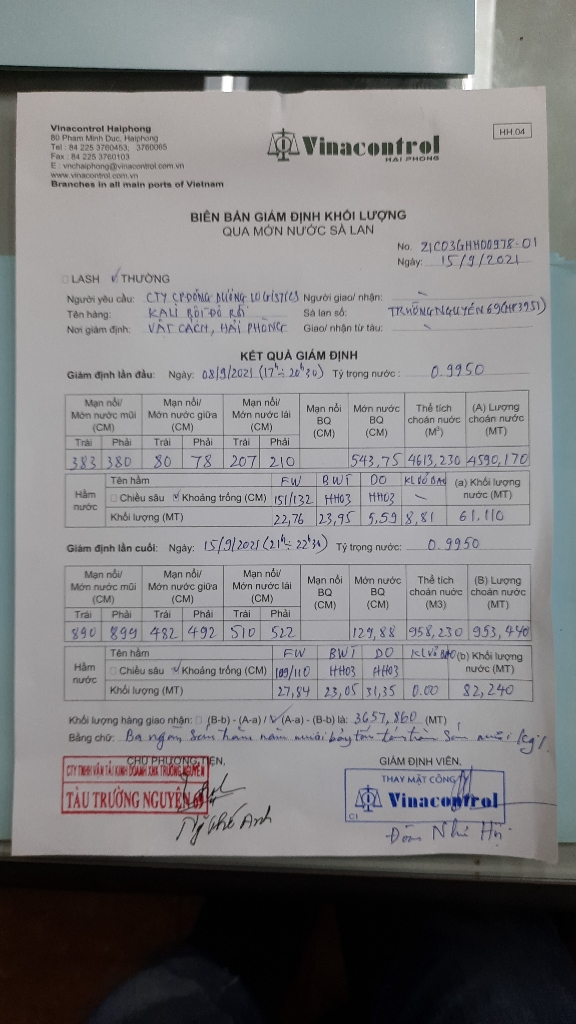 Vinacontrol Haiphong
80 Pham Minh Duc, Haiphong
Tel : 84 225 3760453, 3760065
Fax : 84 225 3760103
E : vnchaiphong@vinacontrol.com.vn
www.vinacontrol.com.vn
Branches in all main ports of Vietnam
Vinacontrol
HAI PHONG
HH.04
BIÊN BẢN GIÁM ĐỊNH KHỐI LƯỢNG
QUA MỚN NƯỚC SÀ LAN
No. 21C03GHH00978-01
Ngày: 15/9/2021
LASH THƯỜNG
Người yêu cầu: CTY CP ĐÔNG DƯƠNG LOGISTICS Người giao/ nhận:
Tên hàng: KALI BỘT ĐỎ RỜI Sà lan số: TRƯỜNG NGUYÊN 69 (HP3951)
Nơi giám định: VẬT CÁCH, HẢI PHÒNG Giao/ nhận từ tàu:
KẾT QUẢ GIÁM ĐỊNH
Giám định lần đầu: Ngày: 08/9/2021 (17h ÷ 20h30) Tỷ trọng nước : 0.9950
Mạn nổi/ Mớn nước mũi (CM) Mạn nổi/ Mớn nước giữa (CM) Mạn nổi/ Mớn nước lái (CM) Mạn nổi BQ (CM) Mớn nước BQ (CM) Thể tích choán nước (M³) (A) Lượng choán nước (MT)
Trái Phải Trái Phải Trái Phải
383 380 80 78 207 210 543,75 4613,230 4590,170
Hầm nước Tên hầm FW BWT DO KL VỎ BAO (a) Khối lượng nước (MT)
Chiều sâu Khoảng trống (CM) 151/132 HH03 HH03
Khối lượng (MT) 22,76 23,95 5.59 8,81 61.110
Giám định lần cuối: Ngày: 15/9/2021 (21h ÷ 22h30) Tỷ trọng nước: 0.9950
Mạn nổi/ Mớn nước mũi (CM) Mạn nổi/ Mớn nước giữa (CM) Mạn nổi/ Mớn nước lái (CM) Mạn nổi BQ (CM) Mớn nước BQ (CM) Thể tích choán nước (M3) (B) Lượng choán nước (MT)
Trái Phải Trái Phải Trái Phải
890 899 482 492 510 522 129,88 958,230 953,440
Hầm nước Tên hầm FW BWT DO KL VỎ BAO (b) Khối lượng nước (MT)
Chiều sâu Khoảng trống (CM) 109/110 HH03 HH03
Khối lượng (MT) 27,84 23,05 31,35 0.00 82,240
Khối lượng hàng giao nhận: (B-b) - (A-a) / (A-a) - (B-b) là: 3657,860 (MT)
Bằng chữ: Ba ngàn sáu trăm năm mươi bảy tấn tám trăm sáu mươi kg
CHỦ PHƯƠNG TIỆN,
CTY TNHH VẬN TẢI KINH DOANH XNK TRƯỜNG NGUYÊN
TÀU TRƯỜNG NGUYÊN 69
Ng Thế Anh
GIÁM ĐỊNH VIÊN,
THAY MẶT CÔNG TY
Vinacontrol
C1